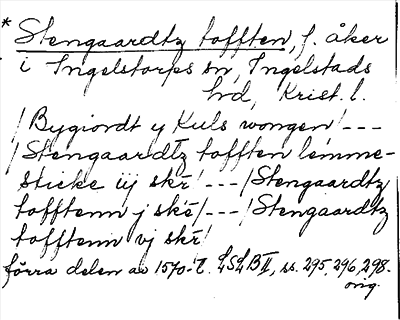 * Stengaardtz tofften, f. åker
i Ingelstorps sn, Ingelstads
hd, Krist. l.
/Bygiordt y Kuls wongen/---
/Stengaardtz tofften lemme-
sticke iij skr̄/---/Stengaardtz
tofftenn j skē/---/Stengaardtz
tofftenn vj skr̄/
förra delen av 1570-t. LSLB II, ss. 295, 296, 298.
orig.